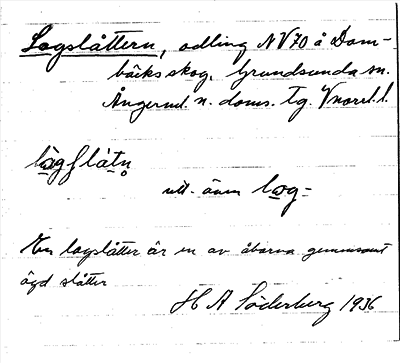 Lagslåttern, odling NV70 å Dom-
bäcks skog, Grundsunda sn.
Ångerml. n. doms. tg. Vnorrl. l.
lagslåtn
utt. även lag-
En lagslåtter är en av åbarna gemensamt
ägd slåtter
H A Söderberg 1936